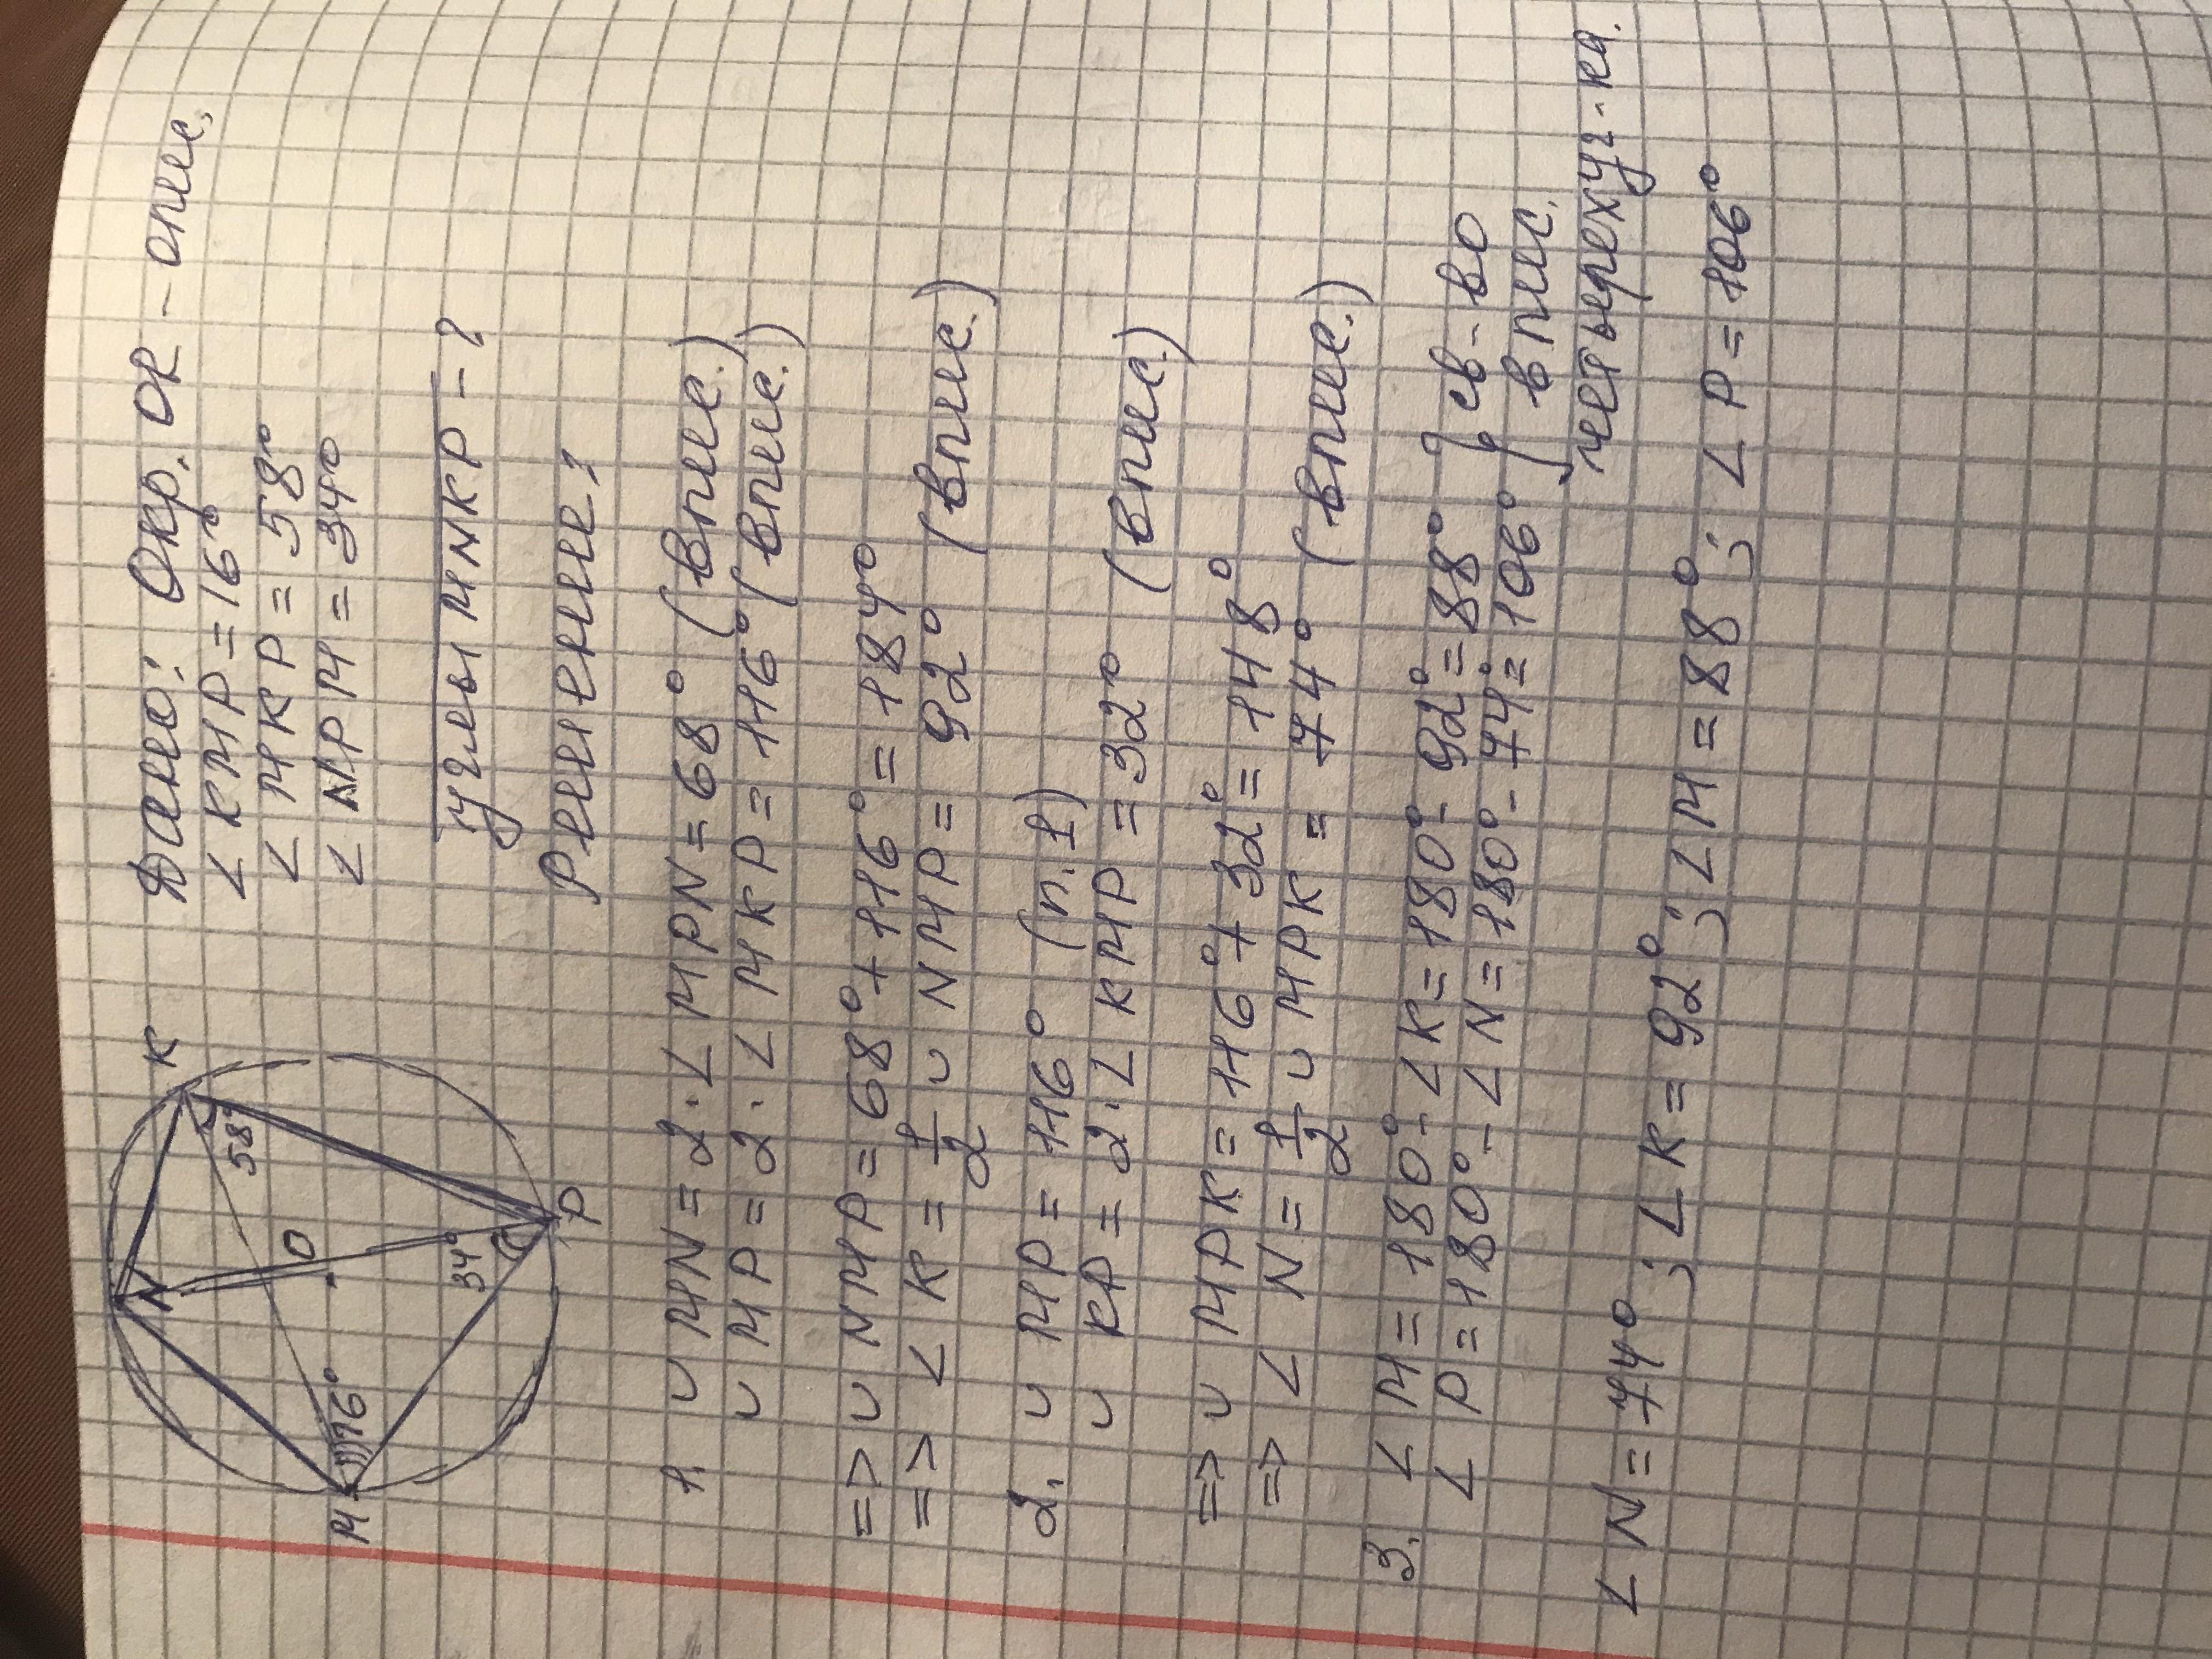 Дано: Окр. OR – опис.
∠ KMP = 16°
∠ MKP = 58°
∠ NPM = 34°
углы MNKP – ?
Решение:
K
N
58°
O
M
16°
34°
P
1. ∪ MN = 2 · ∠ MPN = 68° (впис.)
∪ MP = 2 · ∠ MKP = 116° (впис.)
=> ∪ NMP = 68° + 116° = 184°
=> ∠ K = 1/2 ∪ NMP = 92° (впис.)
2. ∪ MP = 116° (п. 1)
∪ KP = 2 · ∠ KMP = 32° (впис.)
=> ∪ MPK = 116° + 32° = 148°
=> ∠ N = 1/2 ∪ MPK = 74° (впис.)
3. ∠ M = 180° - ∠ K = 180° - 92° = 88° } св-во
∠ P = 180° - ∠ N = 180° - 74° = 106° впис.
четырехуг-ка.
∠ N = 74°; ∠ K = 92°; ∠ M = 88°; ∠ P = 106°